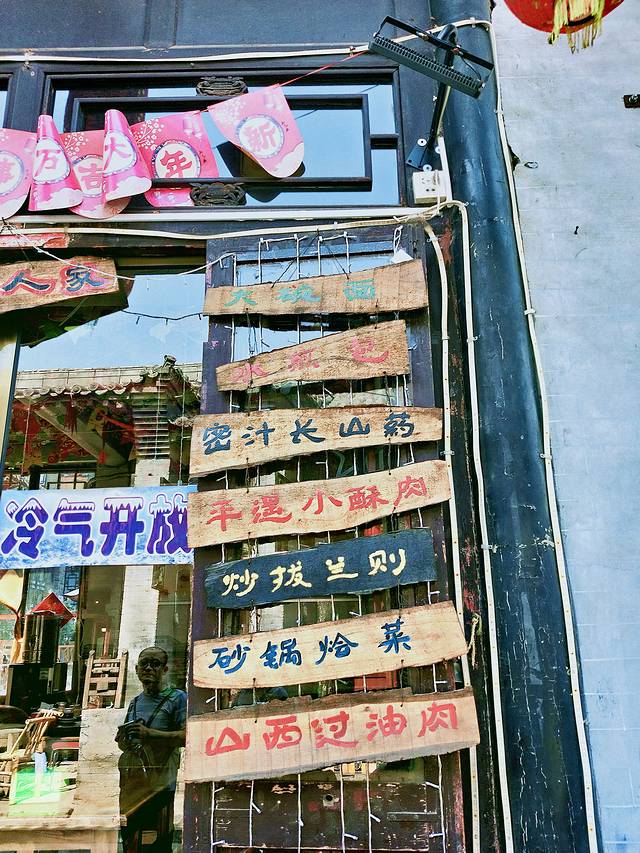 万吉大年新
人家
大碗面
水煎包
密汁长山药
平遥小酥肉
冷气开放
炒拨兰则
砂锅烩菜
山西过油肉